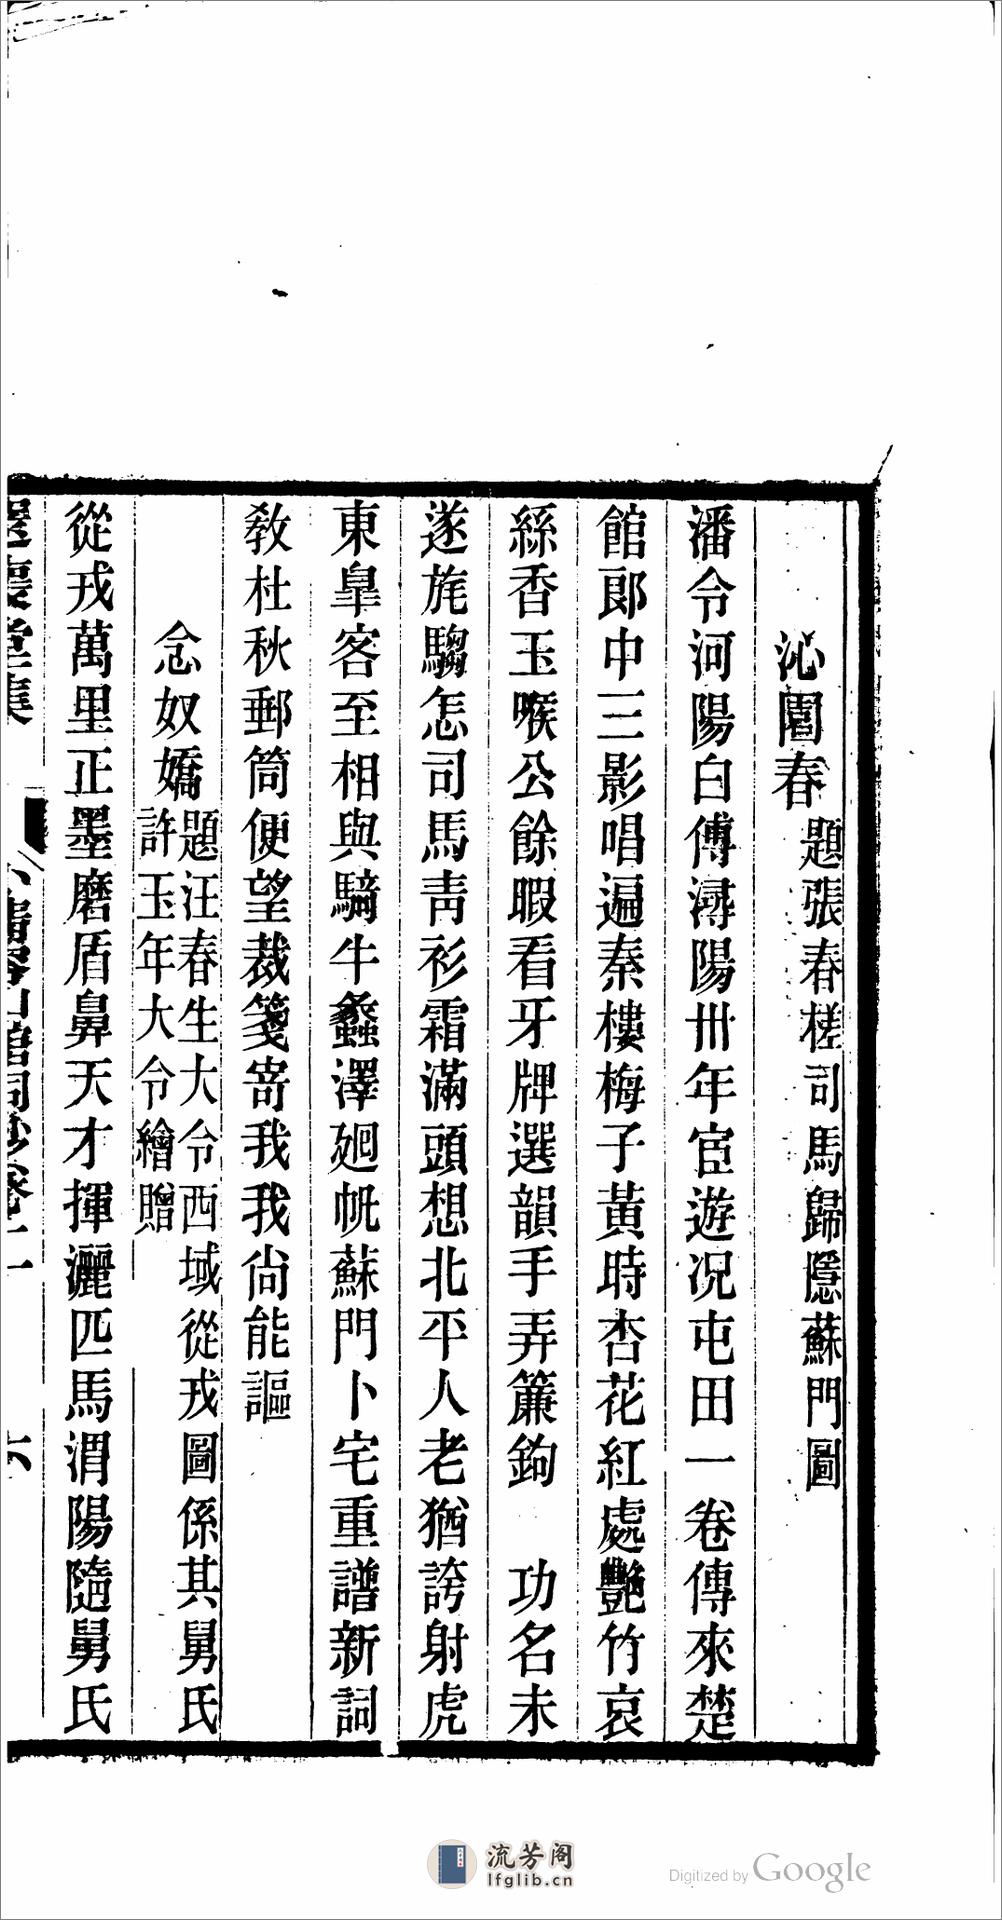 沁園春題張春槎司馬歸隱蘇門圖
潘令河陽白傅潯陽卅年宦遊况屯田一卷傳來楚
館郎中三影唱遍秦樓梅子黃時杏花紅處艷竹哀
絲香玉喉公餘暇看牙牌選韻手弄簾鉤　功名未
遂旄騶怎司馬靑衫霜滿頭想北平人老猶誇射虎
東臯客至相與騎牛蠡澤廻帆蘇門卜宅重譜新詞
敎杜秋郵筒便望裁箋寄我我尙能謳
念奴嬌題汪春生大令西域從戎圖係其舅氏
許玉年大令繪贈
從戎萬里正墨磨盾鼻天才揮灑匹馬渭陽隨舅氏
堂集
山館詞鈔卷
六
流芳阁
lfglib.cn
Digitized by Google